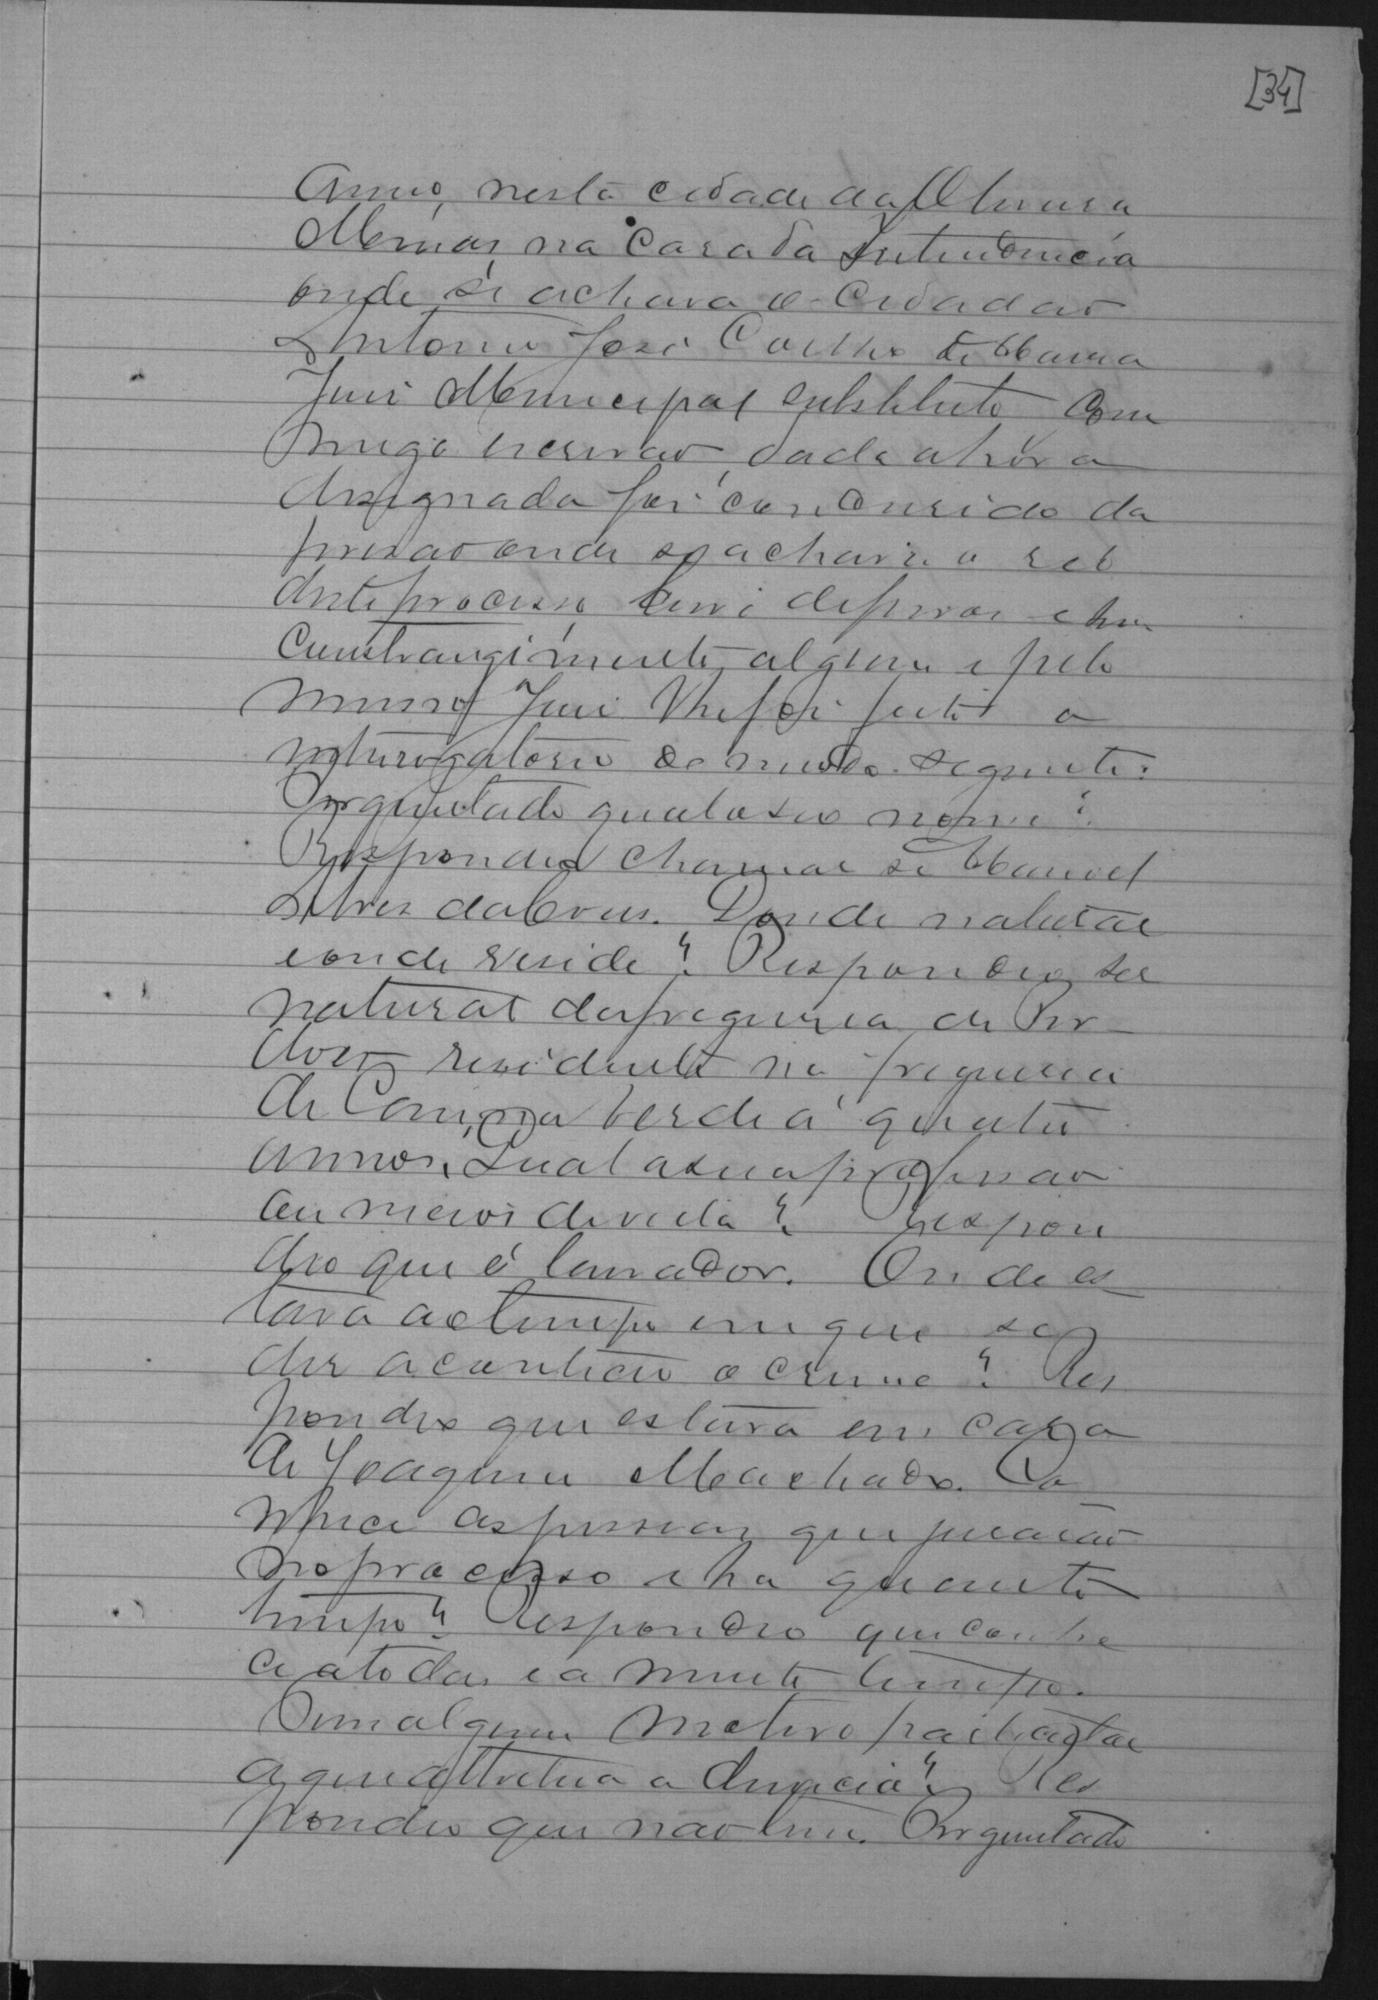 [34]
Anno, nesta cidade da Oliveira
na Casa da Intendencia
onde si achava o Cidadão
Antonio José Coelho de
Juis Municipal substituto Com
migo escrivão, dada a hóra
designada foi condusido da
prisao onde se achava o reo
deste processo, livri de ferros e sem
Constrangimento algum e pelo
mesmo Juis lhe foi feito o
interrogatorio do modo seguinte:
Preguntado qual o seu nome?
Respondeo chamar se Manoel
Alves da Crus. Donde natural
e onde reside? Respondeo ser
natural da freguesia de
residente na freguesia
de Verde a quatro
annos. Qual a sua profissão
ou meios de vida? Respon
deo que é lavrador. Onde es
tava ao tempo em que se
dis aconteceo o crime? Res
pondeo que estava em casa
de Joaquim Machado. Co
nhece as pessoas que juraráo
no processo e ha quanto
tempo? Respondeo que conhe
ce a todas e a muito tempo.
Tem algum motivo particular
a que attribua a denuncia? Res
pondeo que não tem. Preguntado